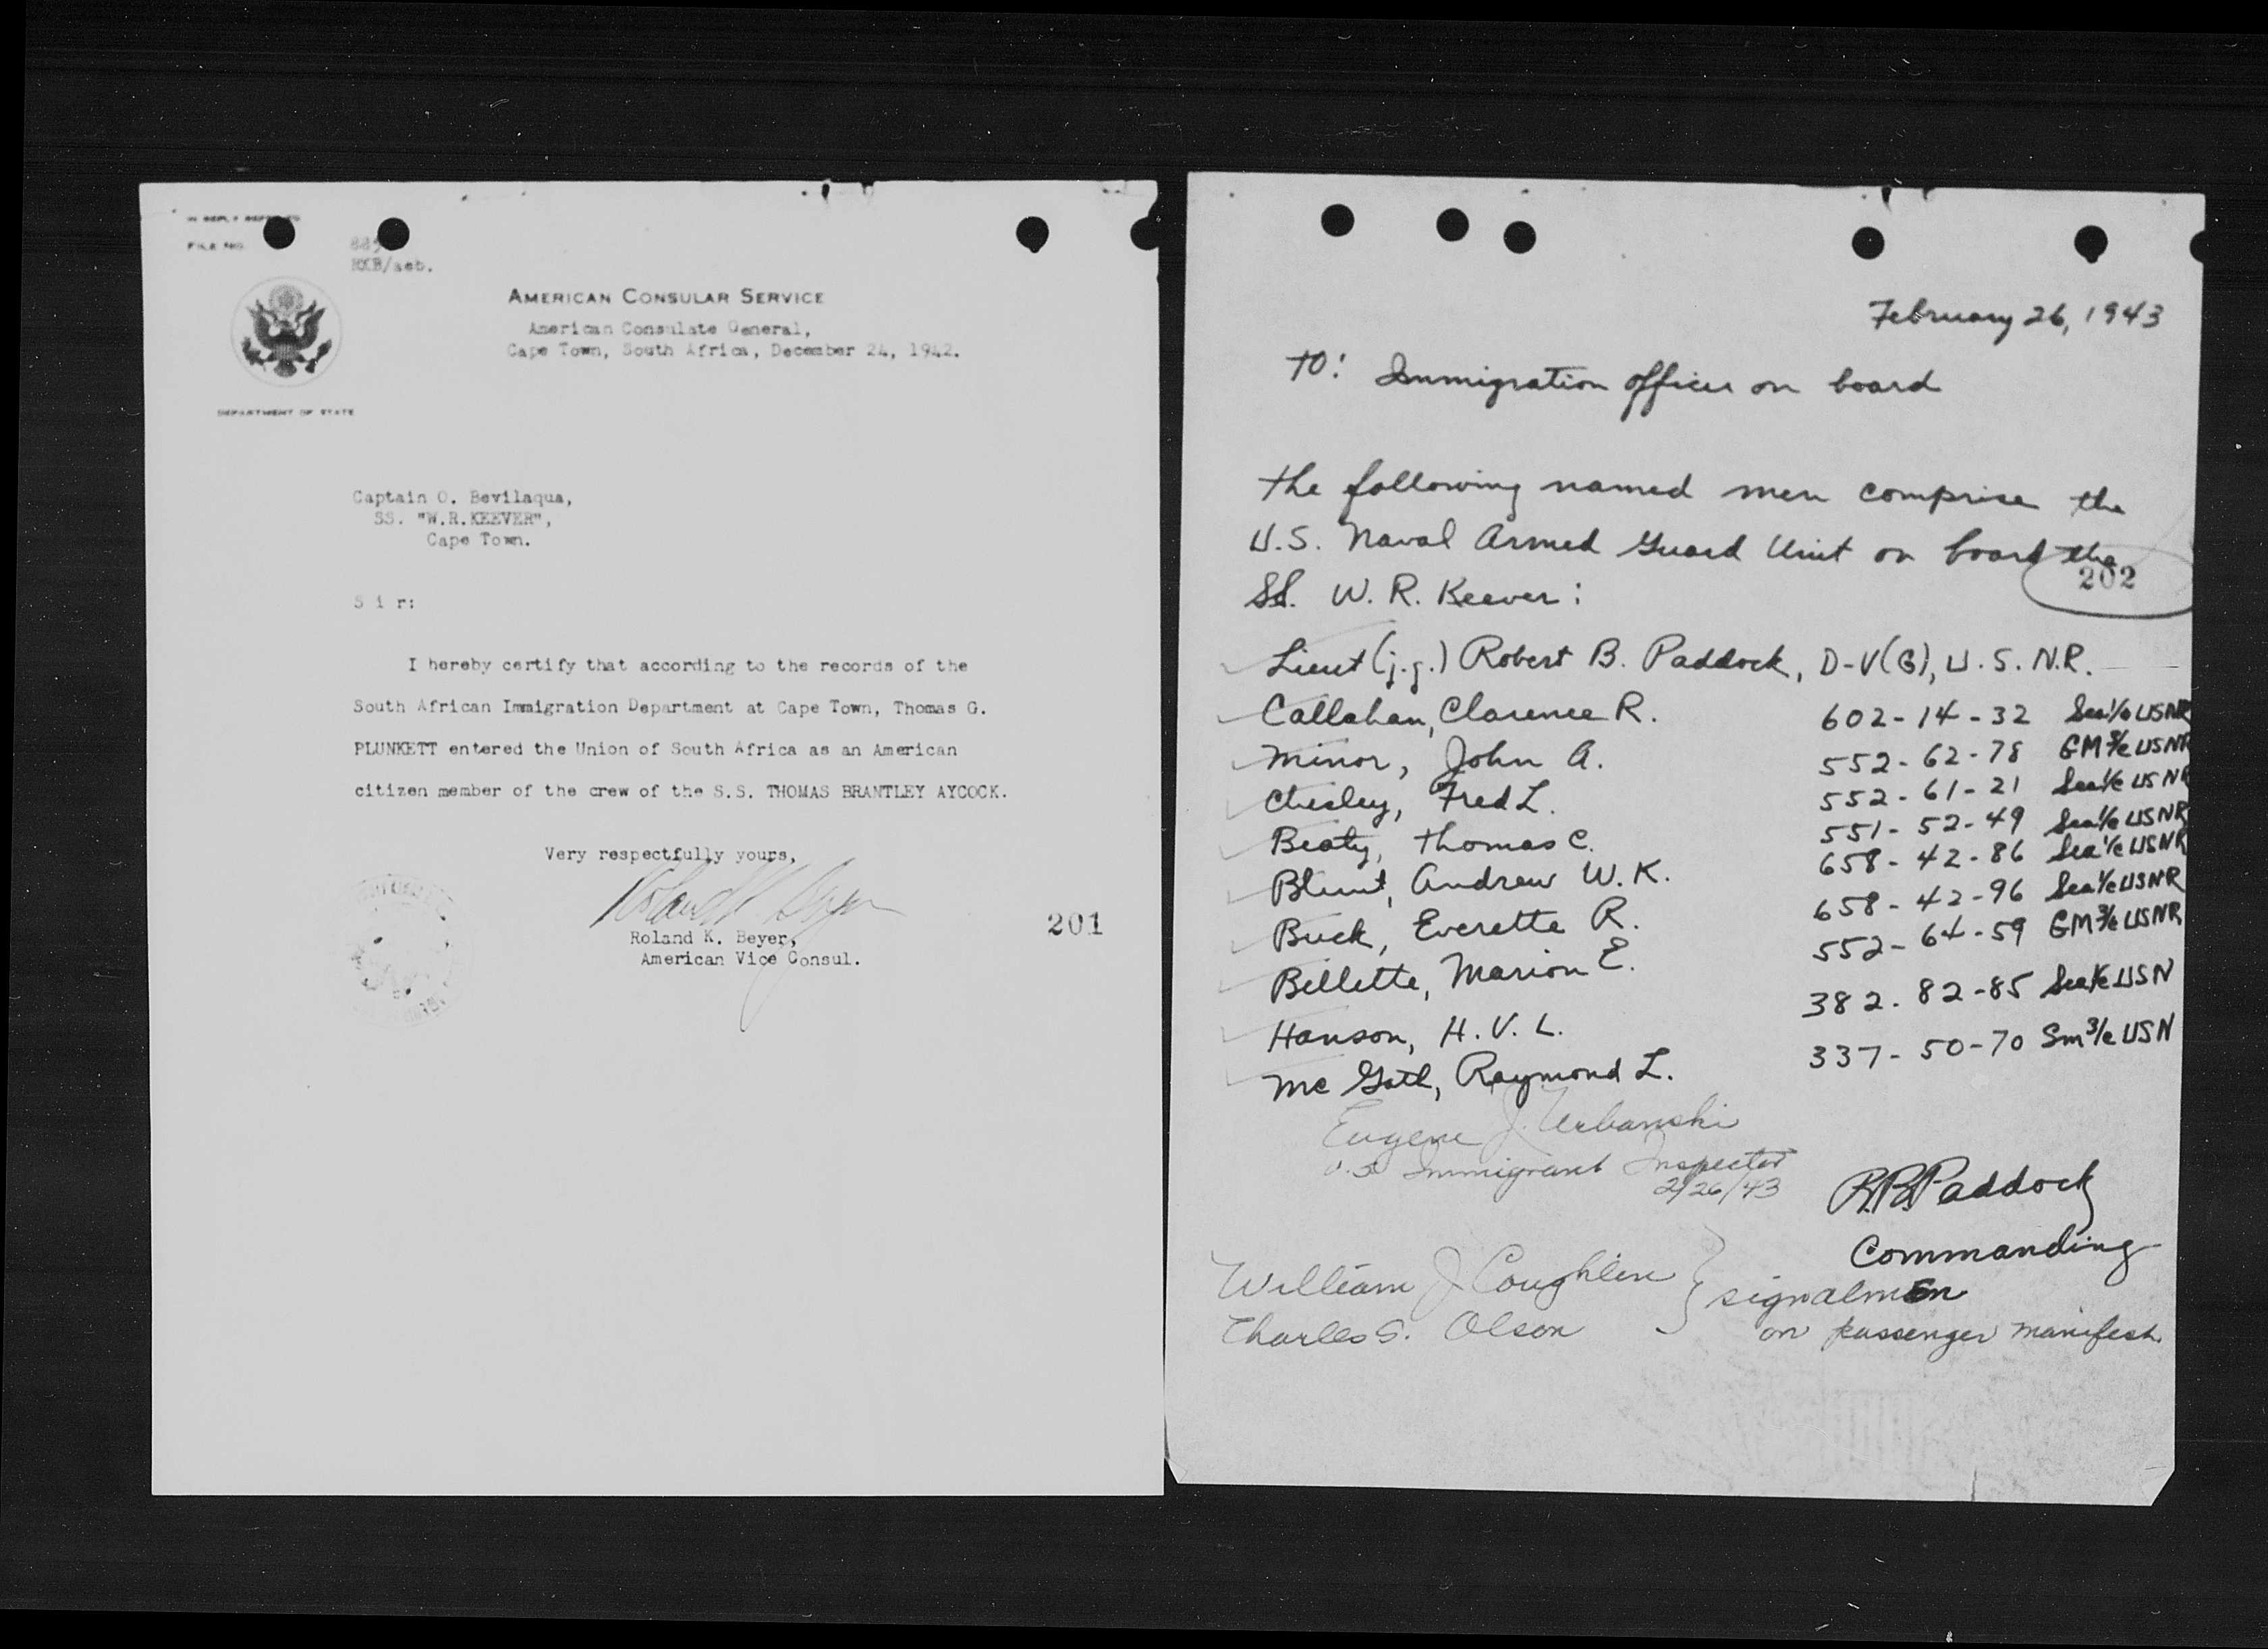 IN REPLY REFER TO
FILE NO.
RKB/aeb.
AMERICAN CONSULAR SERVICE
American Consulate General,
Cape Town, South Africa, December 24, 1942.
DEPARTMENT OF STATE
Captain O. Bevilaqua,
SS. "W.R.KEEVER",
Cape Town.
S i r:
I hereby certify that according to the records of the
South African Immigration Department at Cape Town, Thomas G.
PLUNKETT entered the Union of South Africa as an American
citizen member of the crew of the S.S. THOMAS BRANTLEY AYCOCK.
Very respectfully yours,
Roland K. Beyer
Roland K. Beyer,
American Vice Consul.
201
February 26, 1943
TO: Immigration officer on board
the following named men comprise the
U.S. Naval Armed Guard Unit on board the
202
SS. W. R. Keever:
Lieut (j.g.) Robert B. Paddock, D-V(G), U.S.N.R.
Callahan, Clarence R. 602-14-32 Sea 1/c USNR
Minor, John A. 552-62-78 GM 3/c USNR
Chesley, Fred L. 552-61-21 Sea 1/c USNR
Beaty, Thomas C. 551-52-49 Sea 1/c USNR
Blunt, Andrew W. K. 658-42-86 Sea 1/c USNR
Buck, Everette R. 658-42-96 Sea 1/c USNR
Billette, Marion E. 552-64-59 GM 3/c USNR
Hanson, H. V. L. 382-82-85 Sea 1/c USN
Mc Gath, Raymond L. 337-50-70 Sm 3/c USN
Eugene J. Urbanski
U.S. Immigrant Inspector
2/26/43
R.B. Paddock
Commanding
William J Coughlin
Charles S. Olson
signalmen
on passenger manifest.